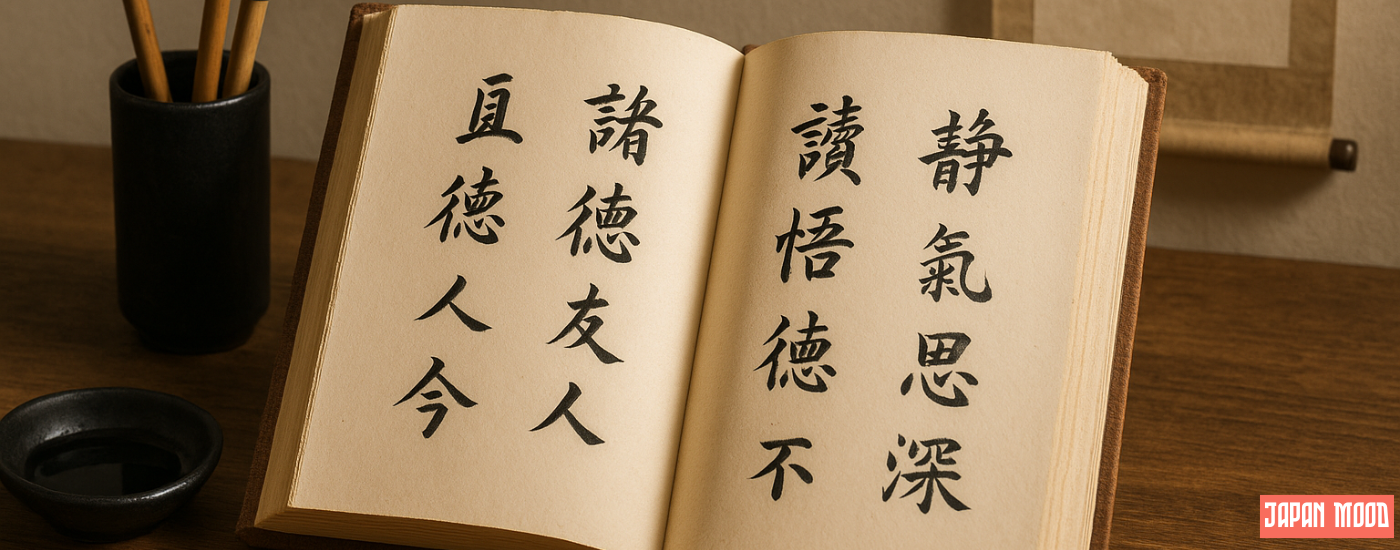 静氣思深
讀悟徳不
諸徳友人
徳人今
JAPAN MOOD